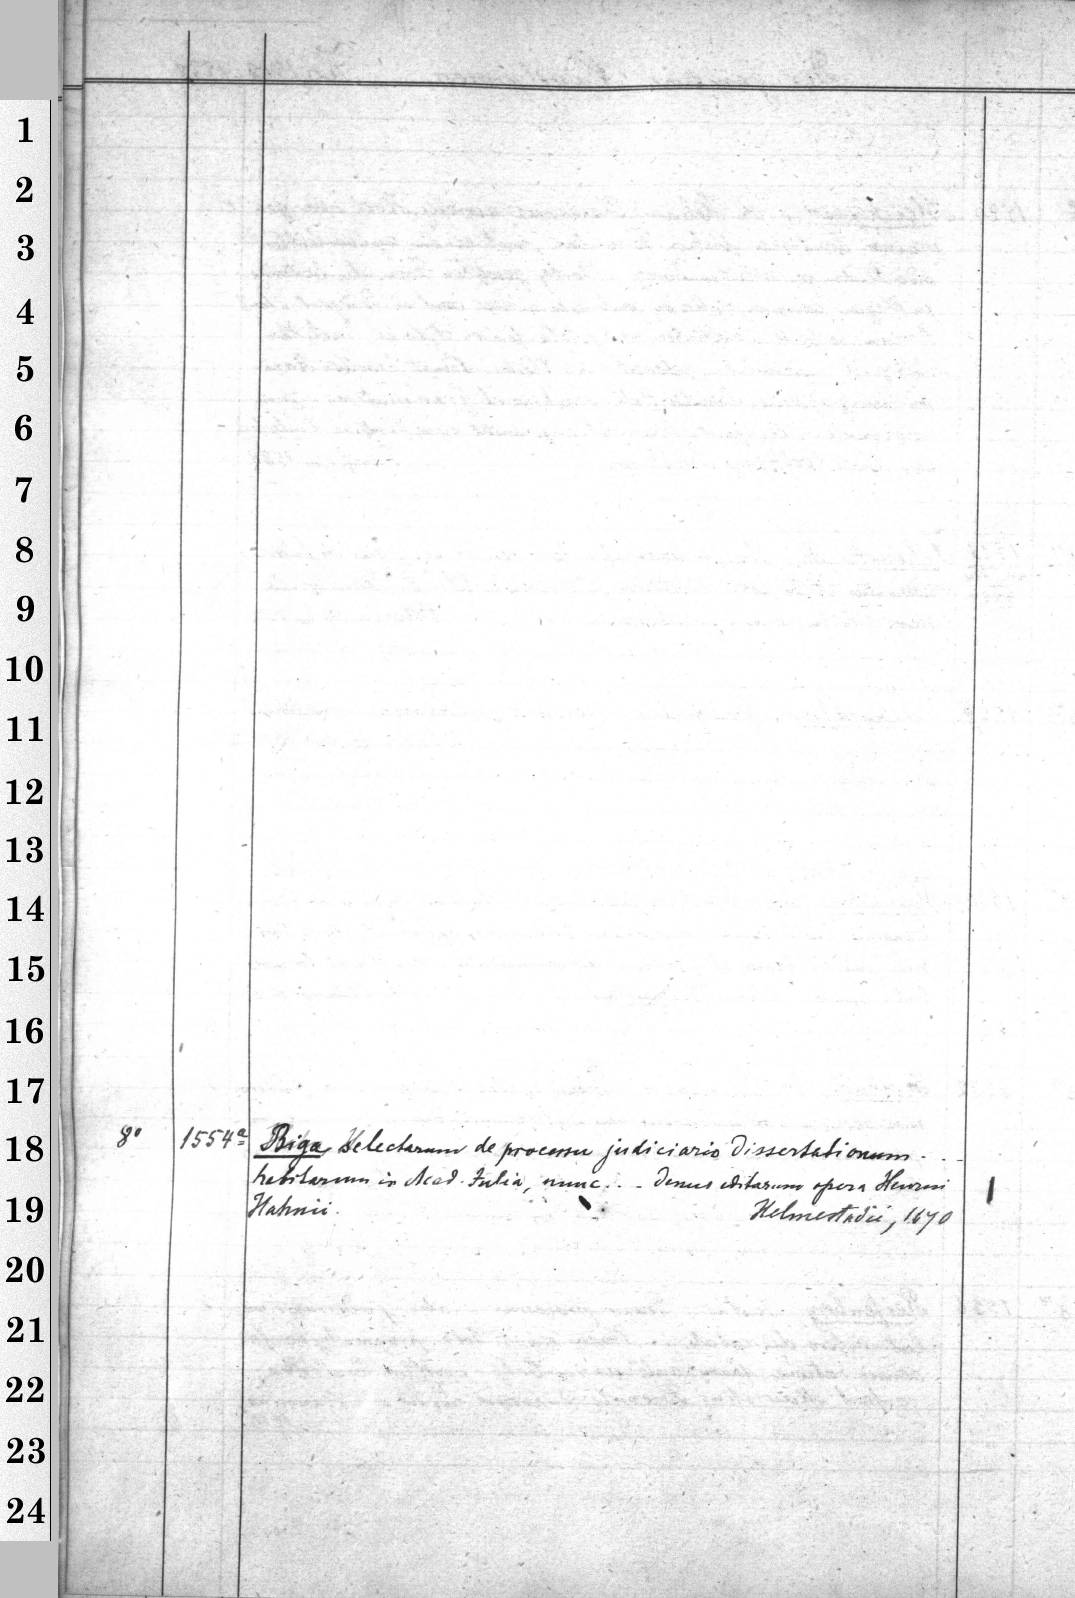 1
2
3
4
5
6
7
8
9
10
11
12
13
14
15
16
17
18
19
20
21
22
23
24
8° 1554a Biga Selectarum de processu judiciario Dissertationum . . .
habitarum in Acad. Julia, nunc . . . denuo editarum opera Henrici
Hahnii. Helmestadii, 1670